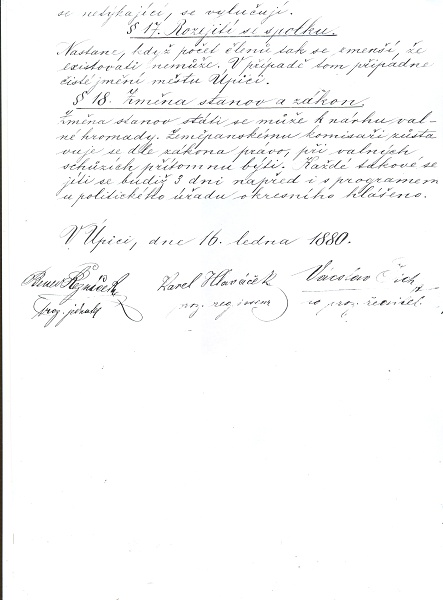 se netýkající, se vylučují.
§ 17. Rozejití se spolku.
Nastane, když počet členů tak se smenší, že
existovati nemůže. V případě tom připadne
čisté jmění městu Úpici.
§ 18. Změna stanov a zákon.
Změna stanov státi se může k návrhu val-
né hromady. Zeměpanskému komisaři zůsta
vuje se dle zákona právo, při valných
schůzích přítomnu býti. Každé takové se
jití se budiž 3 dni napřed i s programem
u politického úřadu okresního hlášeno.
V Úpici, dne 16. ledna 1880.
Karel Hlaváček
Václav